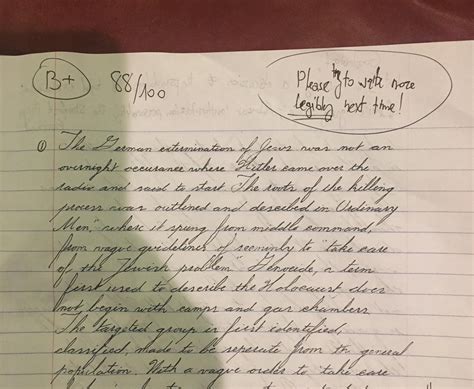 B+ 88/100
Please try to write more
legibly next time!
① The German extermination of Jews was not an
overnight occurance where Hitler came over the
radio and said to start. The roots of the killing
process was outlined and descibed in "Ordinary
Men," where it sprung from middle command,
from vague guidelines of seeminly to "take care
of the Jewish problem" Genocide, a term
first used to describe the Holocaust does
not, begin with camps and gas chambers
The targeted group is first identified,
classified, made to be seperate from the general
population. With a vague order to "take care
of